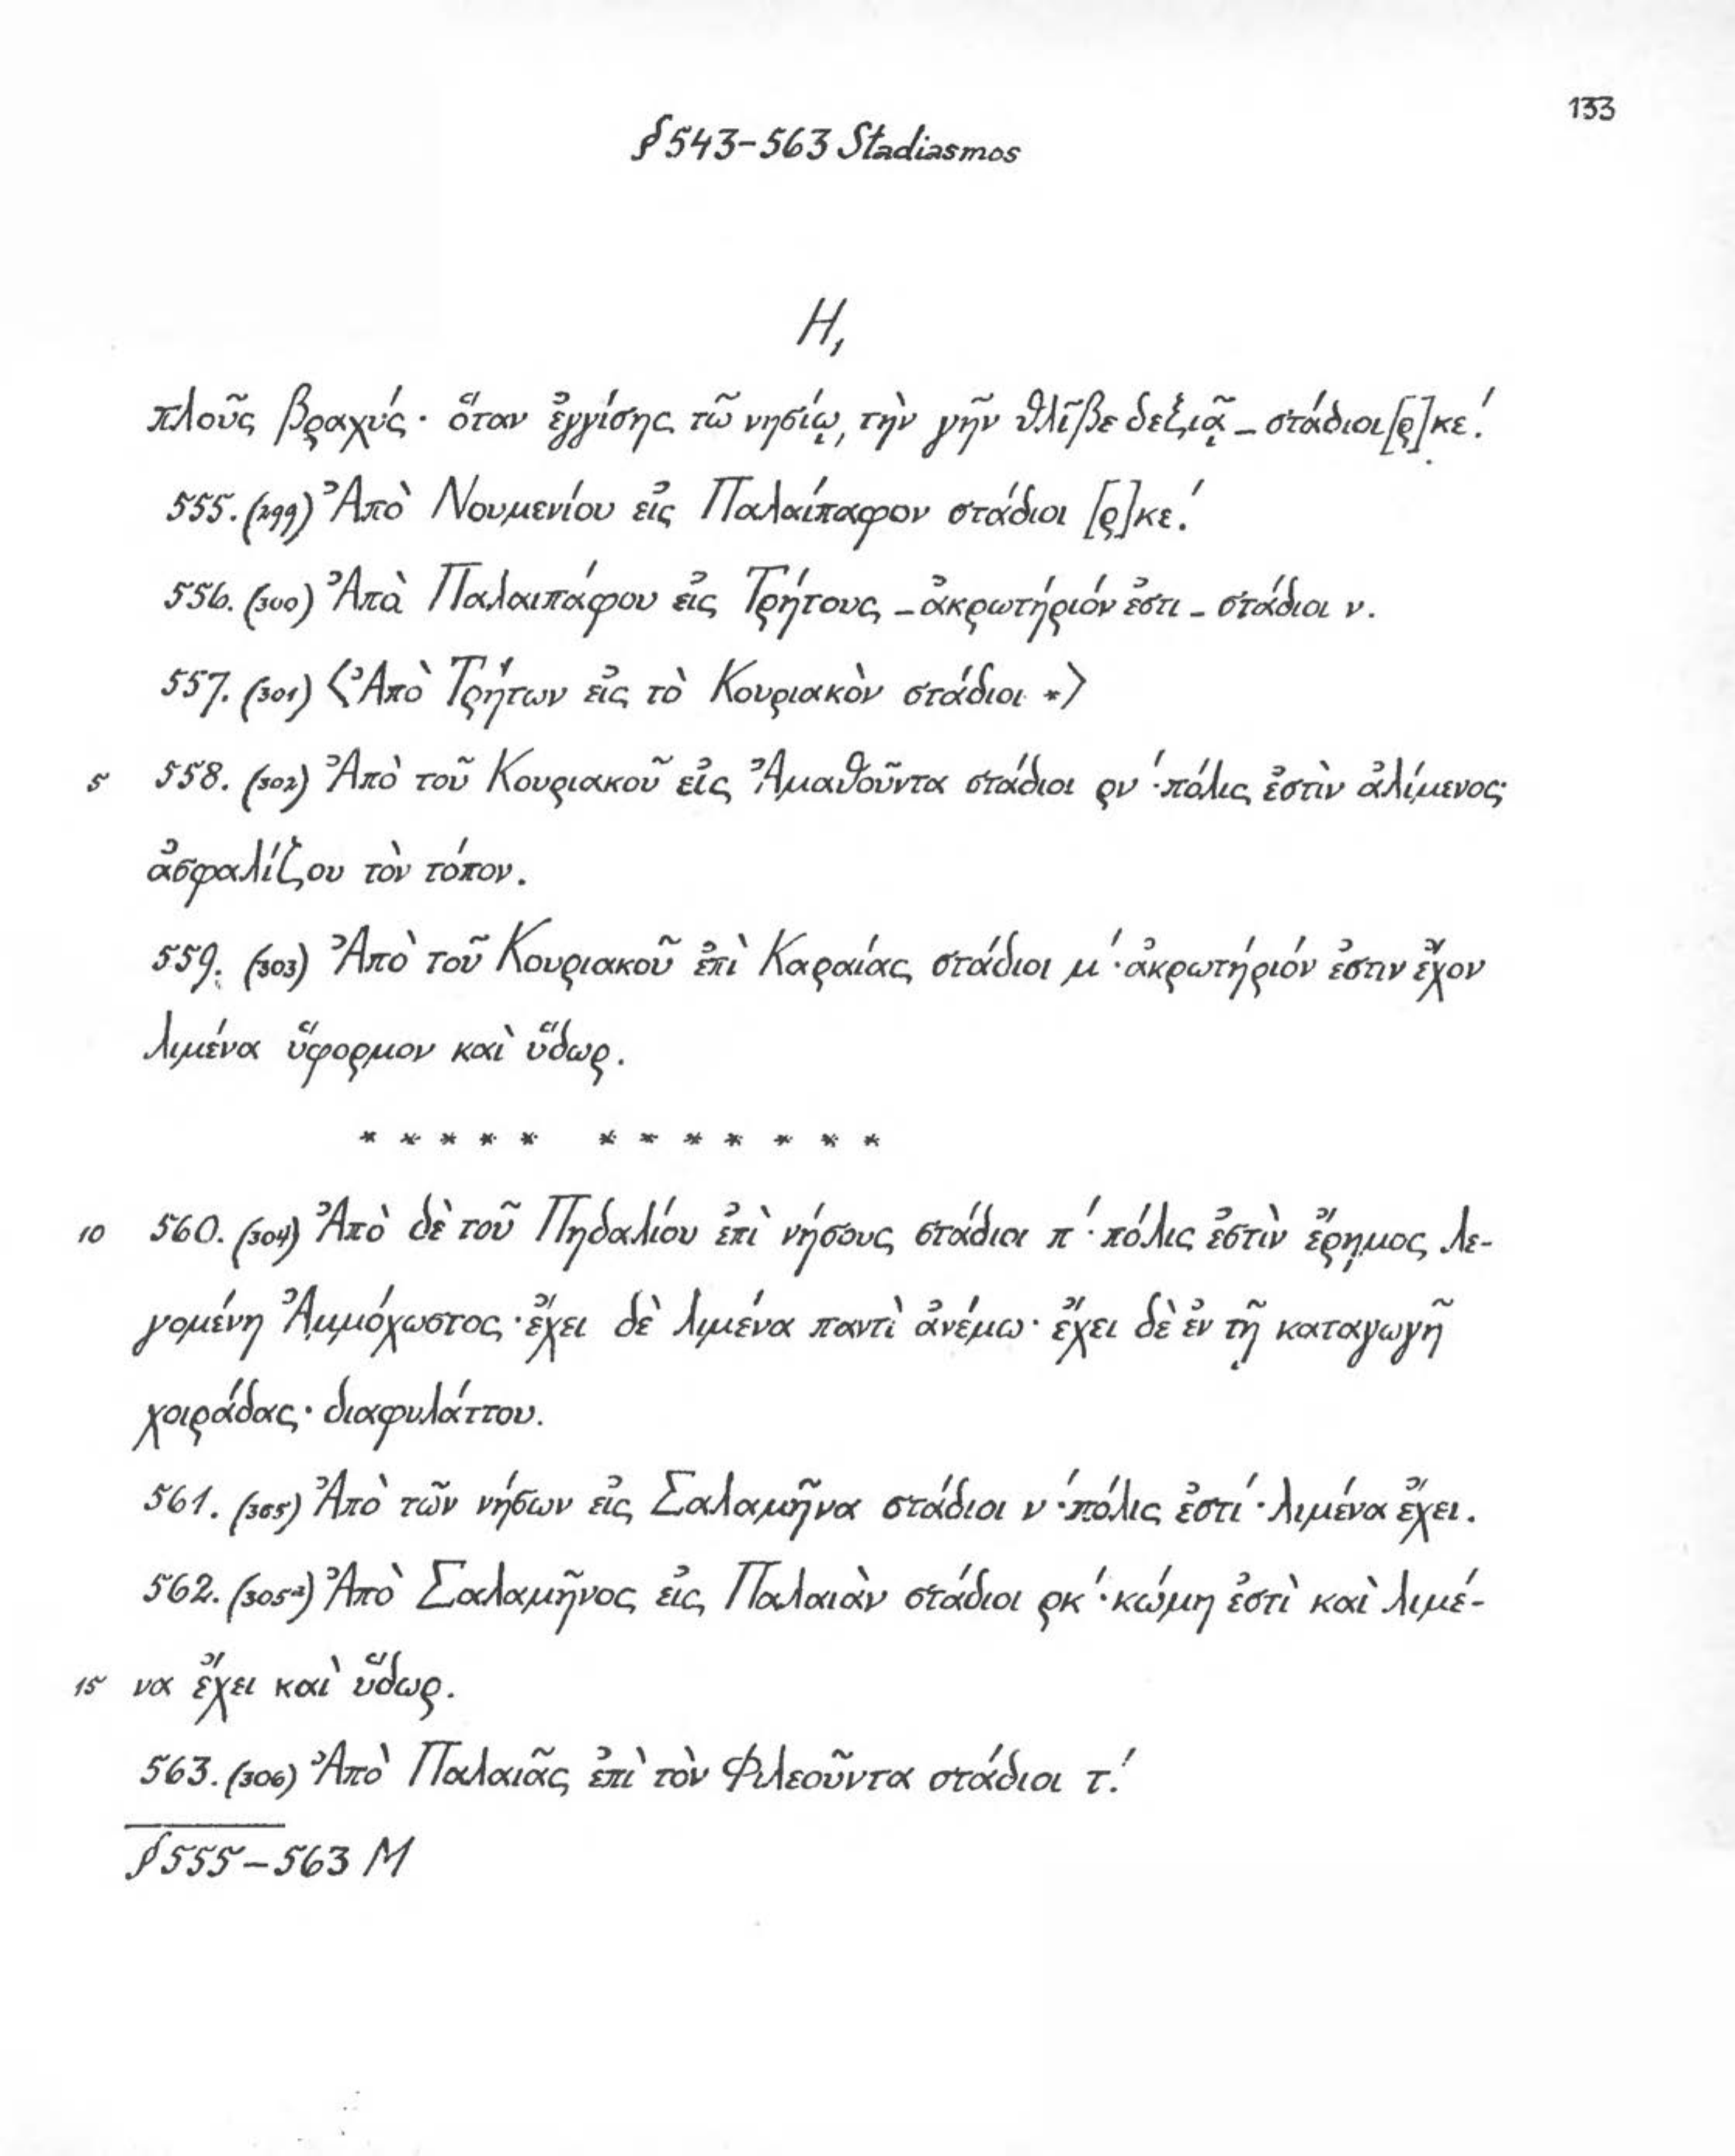 133
§ 543-563 Stadiasmos
H,
πλοῦς βραχύς· ὅταν ἐγγίσης τῶ νησίῳ, τὴν γῆν θλῖβε δεξιᾷ – στάδιοι [ρ]κε.'
555. (299) Ἀπὸ Νουμενίου εἰς Παλαίπαφον στάδιοι [ρ]κε.'
556. (300) Ἀπὰ Παλαιπάφου εἰς Τρήτους – ἀκρωτήριόν ἐστι – στάδιοι ν.
557. (301) <Ἀπὸ Τρήτων εἰς τὸ Κουριακὸν στάδιοι *>
5 558. (302) Ἀπὸ τοῦ Κουριακοῦ εἰς Ἀμαθοῦντα στάδιοι ρν'· πόλις ἐστὶν ἀλίμενος·
ἀσφαλίζου τὸν τόπον.
559. (303) Ἀπὸ τοῦ Κουριακοῦ ἐπὶ Καραίας στάδιοι μ'· ἀκρωτήριόν ἐστιν ἔχον
λιμένα ὕφορμον καὶ ὕδωρ.
* * * * * * * * * * * *
10 560. (304) Ἀπὸ δὲ τοῦ Πηδαλίου ἐπὶ νήσους στάδιοι π'· πόλις ἐστὶν ἔρημος λε-
γομένη Ἀμμόχωστος· ἔχει δὲ λιμένα παντὶ ἀνέμω· ἔχει δὲ ἐν τῇ καταγωγῆ
χοιράδας· διαφυλάττου.
561. (305) Ἀπὸ τῶν νήσων εἰς Σαλαμῆνα στάδιοι ν'· πόλις ἐστί· λιμένα ἔχει.
562. (305ª) Ἀπὸ Σαλαμῆνος εἰς Παλαιὰν στάδιοι ρκ'· κώμη ἐστὶ καὶ λιμέ-
15 να ἔχει καὶ ὕδωρ.
563. (306) Ἀπὸ Παλαιᾶς ἐπὶ τὸν Φιλεοῦντα στάδιοι τ.'
§ 555-563 M